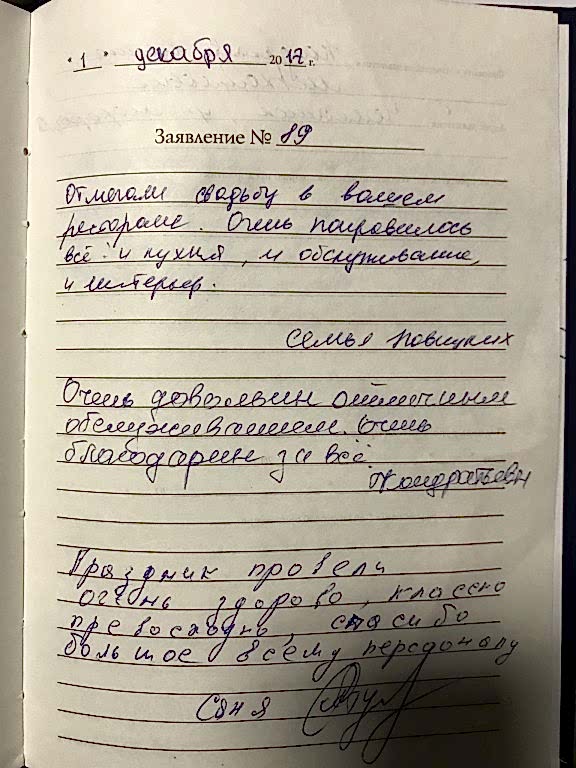 "1" декабря 2017 г.
Заявление № 89
Отмечали свадьбу в вашем
ресторане. Очень понравилось
всё: и кухня, и обслуживание,
и интерьер.
Семья Новицких
Очень довольны отличным
обслуживанием. Очень
благодарны за всё
Кондратьевы
Праздник провели
очень здорово, классно
превосходно, спасибо
большое всему персоналу
Соня